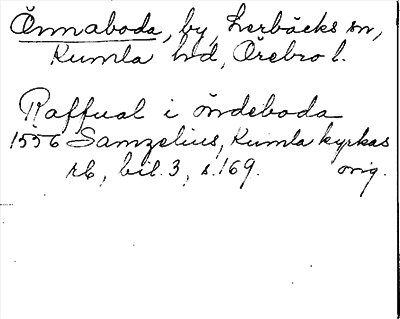 Önnaboda, by, Lerbäcks sn,
Kumla hd, Örebro l.
Raffual i öndeboda
1556 Samzelius, Kumla kyrkas
rb, bil. 3, s. 169. orig.